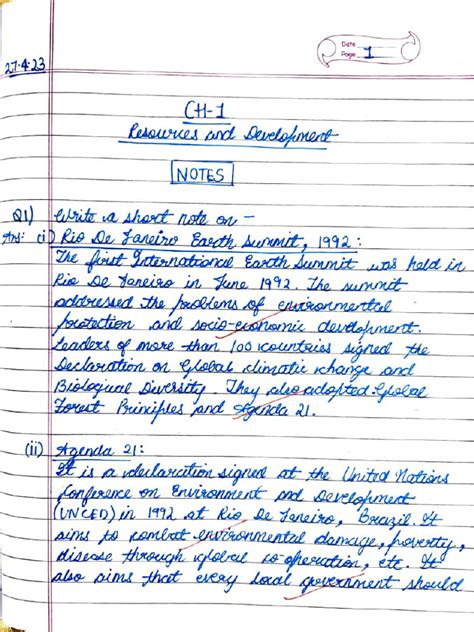 Date
Page 1
27.4.23
CH-1
Resources and Development
NOTES
Q1) Write a short note on –
Ans: (i) Rio De Janeiro Earth Summit, 1992:
The first International Earth Summit was held in
Rio De Janeiro in June 1992. The summit
addressed the problems of environmental
protection and socio-economic development.
Leaders of more than 100 countries signed the
Declaration on Global climatic change and
Biological Diversity. They also adopted Global
Forest Principles and Agenda 21.
(ii) Agenda 21:
It is a declaration signed at the United Nations
Conference on Environment and Development
(UNCED) in 1992 at Rio De Janeiro, Brazil. It
aims to combat environmental damage, poverty,
disease through global co-operation, etc. It
also aims that every local government should